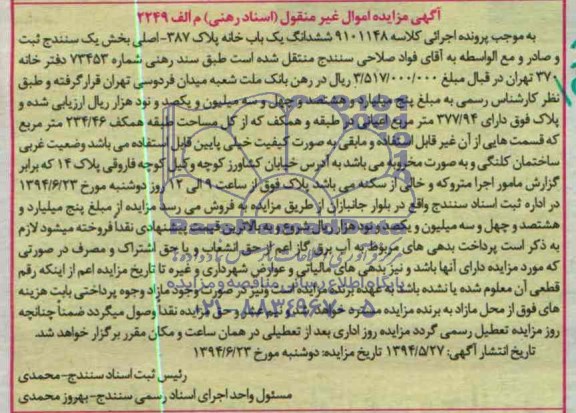 آگهی مزایده اموال غیر منقول (اسناد رهنی) م الف ۲۲۴۹
به موجب پرونده اجرائی کلاسه ۹۱۰۱۱۴۸ ششدانگ یک باب خانه پلاک ۳۸۷-اصلی بخش یک سنندج ثبت
و صادر و مع الواسطه به آقای فواد صلاحی سنندج منتقل شده است طبق سند رهنی شماره ۷۳۴۵۳ دفتر خانه
۳۷ تهران در قبال مبلغ ۳/۵۱۷/۰۰۰/۰۰۰ ریال در رهن بانک ملت شعبه میدان فردوسی تهران قرار گرفته و طبق
نظر کارشناس رسمی به مبلغ پنج میلیارد و هشتصد و چهل و سه میلیون و یکصد و نود هزار ریال ارزیابی شده و
پلاک فوق دارای ۳۷۷/۹۴ متر مربع اعیانی در طبقه و همکف که از کل مساحت طبقه همکف ۲۳۴/۴۶ متر مربع
که قسمت هایی از آن غیر قابل استفاده و مابقی به صورت کیفیت خیلی پایین قابل استفاده می باشد وضعیت غربی
ساختمان کلنگی و به صورت مخروبه می باشد به آدرس خیابان کشاورز کوچه وکیل کوچه فاروقی پلاک ۱۴ که برابر
گزارش مامور اجرا متروکه و خالی از سکنه می باشد پلاک فوق از ساعت ۹ الی ۱۲ روز دوشنبه مورخ ۱۳۹۴/۶/۲۳
در اداره ثبت اسناد سنندج واقع در بلوار جانبازان از طریق مزایده به فروش می رسد مزایده از مبلغ پنج میلیارد و
هشتصد و چهل و سه میلیون و یکصد و نود هزار ریال شروع و به بالاترین قیمت پیشنهادی نقداً فروخته میشود لازم
به ذکر است پرداخت بدهی های مربوطه به آب برق گاز اعم از حق انشعاب و یا حق اشتراک و مصرف در صورتی
که مورد مزایده دارای آنها باشد و نیز بدهی های مالیاتی و عوارض شهرداری و غیره تا تاریخ مزایده اعم از اینکه رقم
قطعی آن معلوم شده یا نشده باشد به عهده برنده مزایده است ونیز در صورت وجود مازاد وجوه پرداختی بابت هزینه
های فوق از محل مازاد به برنده مزایده مسترد خواهد شد و نیم عشر و حق مزایده نقداً وصول میگردد ضمناً چنانچه
روز مزایده تعطیل رسمی گردد مزایده روز اداری بعد از تعطیلی در همان ساعت و مکان مقرر برگزار خواهد شد.
تاریخ انتشار آگهی: ۱۳۹۴/۵/۲۷ تاریخ مزایده: دوشنبه مورخ ۱۳۹۴/۶/۲۳
رئیس ثبت اسناد سنندج-محمدی
مسئول واحد اجرای اسناد رسمی سنندج-بهروز محمدی
پایگاه اطلاع رسانی مناقصه و مزایده
۰۲۱-۸۸۳۴۹۶۷۰-۵